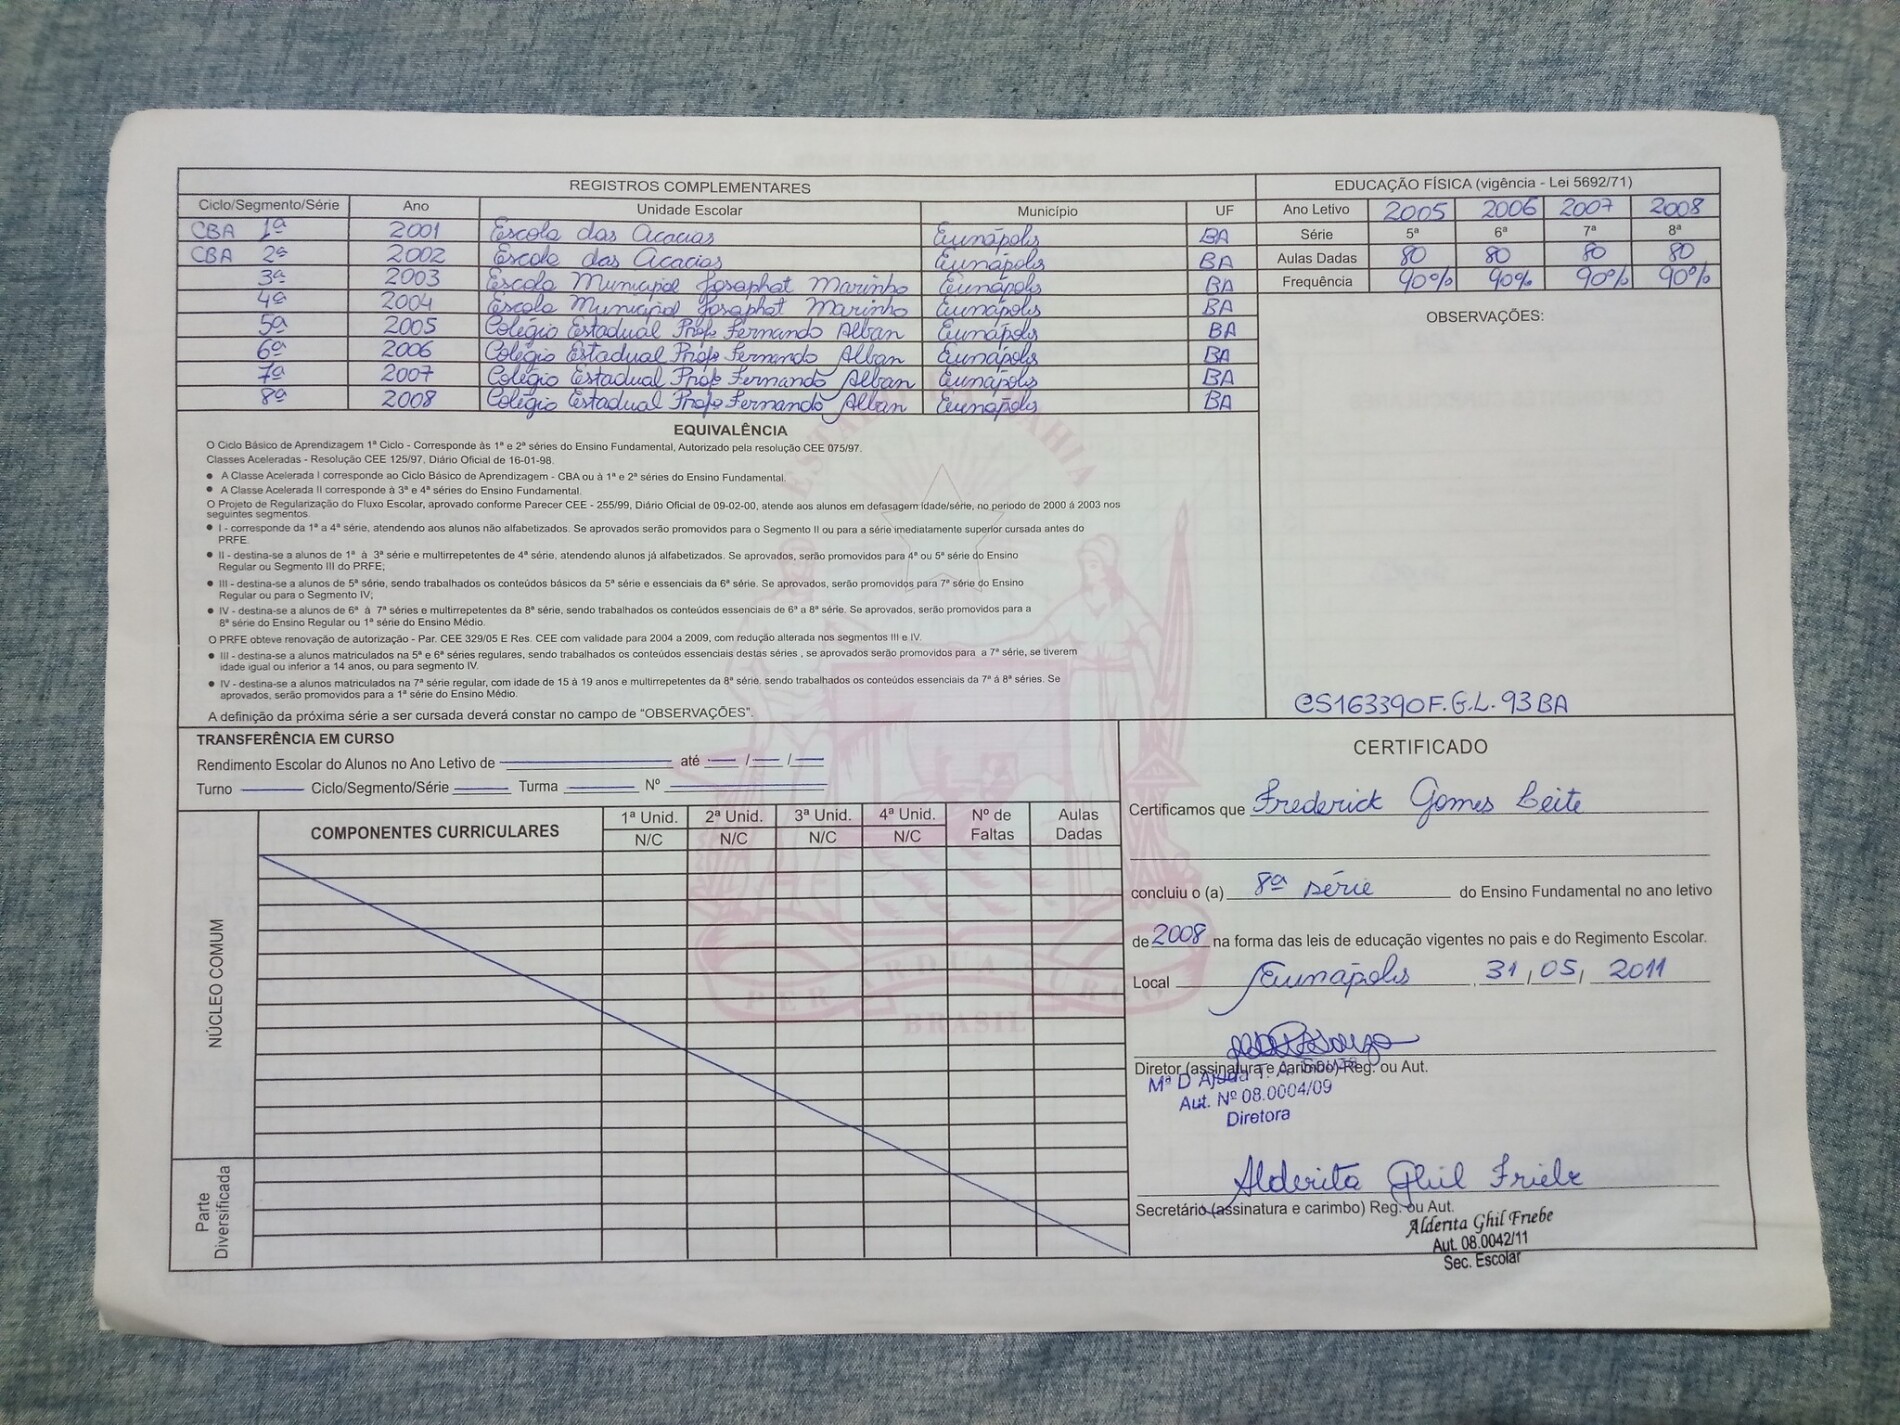 REGISTROS COMPLEMENTARES
Ciclo/Segmento/Série Ano Unidade Escolar Município UF
CBA 1ª 2001 Escola das Acacias Eunápolis BA
CBA 2ª 2002 Escola das Acacias Eunápolis BA
3ª 2003 Escola Municipal Josaphat Marinho Eunápolis BA
4ª 2004 Escola Municipal Josaphat Marinho Eunápolis BA
5ª 2005 Colégio Estadual Profº Fernando Alban Eunápolis BA
6ª 2006 Colégio Estadual Profº Fernando Alban Eunápolis BA
7ª 2007 Colégio Estadual Profº Fernando Alban Eunápolis BA
8ª 2008 Colégio Estadual Profº Fernando Alban Eunápolis BA
EDUCAÇÃO FÍSICA (vigência - Lei 5692/71)
Ano Letivo 2005 2006 2007 2008
Série 5ª 6ª 7ª 8ª
Aulas Dadas 80 80 80 80
Frequência 90% 90% 90% 90%
OBSERVAÇÕES:
CS163390F.G.L.93BA
EQUIVALÊNCIA
O Ciclo Básico de Aprendizagem 1ª Ciclo - Corresponde às 1ª e 2ª séries do Ensino Fundamental, Autorizado pela resolução CEE 075/97.
Classes Aceleradas - Resolução CEE 125/97, Diário Oficial de 16-01-98.
● A Classe Acelerada I corresponde ao Ciclo Básico de Aprendizagem - CBA ou à 1ª e 2ª séries do Ensino Fundamental.
● A Classe Acelerada II corresponde à 3ª e 4ª séries do Ensino Fundamental.
O Projeto de Regularização do Fluxo Escolar, aprovado conforme Parecer CEE - 255/99, Diário Oficial de 09-02-00, atende aos alunos em defasagem idade/série, no periodo de 2000 á 2003 nos
seguintes segmentos.
● I - corresponde da 1ª a 4ª série, atendendo aos alunos não alfabetizados. Se aprovados serão promovidos para o Segmento II ou para a série imediatamente superior cursada antes do
PRFE.
● II - destina-se a alunos de 1ª à 3ª série e multirrepetentes de 4ª série, atendendo alunos já alfabetizados. Se aprovados, serão promovidos para 4ª ou 5ª série do Ensino
Regular ou Segmento III do PRFE;
● III - destina-se a alunos de 5ª série, sendo trabalhados os conteúdos básicos da 5ª série e essenciais da 6ª série. Se aprovados, serão promovidos para 7ª série do Ensino
Regular ou para o Segmento IV;
● IV - destina-se a alunos de 6ª á 7ª séries e multirrepetentes da 8ª série, sendo trabalhados os conteúdos essenciais de 6ª a 8ª série. Se aprovados, serão promovidos para a
8ª série do Ensino Regular ou 1ª série do Ensino Médio.
O PRFE obteve renovação de autorização - Par. CEE 329/05 E Res. CEE com validade para 2004 a 2009, com redução alterada nos segmentos III e IV.
● III - destina-se a alunos matriculados na 5ª e 6ª séries regulares, sendo trabalhados os conteúdos essenciais destas séries , se aprovados serão promovidos para a 7ª série, se tiverem
idade igual ou inferior a 14 anos, ou para segmento IV.
● IV - destina-se a alunos matriculados na 7ª série regular, com idade de 15 à 19 anos e multirrepetentes da 8ª série. sendo trabalhados os conteúdos essenciais da 7ª á 8ª séries. Se
aprovados, serão promovidos para a 1ª série do Ensino Médio.
A definição da próxima série a ser cursada deverá constar no campo de "OBSERVAÇÕES".
TRANSFERÊNCIA EM CURSO
Rendimento Escolar do Alunos no Ano Letivo de até / /
Turno Ciclo/Segmento/Série Turma Nº
COMPONENTES CURRICULARES 1ª Unid. 2ª Unid. 3ª Unid. 4ª Unid. Nº de Faltas Aulas Dadas
N/C N/C N/C N/C
NÚCLEO COMUM
Parte Diversificada
CERTIFICADO
Certificamos que Frederick Gomes Leite
concluiu o (a) 8ª série do Ensino Fundamental no ano letivo
de 2008 na forma das leis de educação vigentes no pais e do Regimento Escolar.
Local Eunápolis, 31, 05, 2011
Diretor (assinatura e carimbo) Reg. ou Aut.
Mª D Ajuda T.
Aut. Nº 08.0004/09
Diretora
Alderita Ghil Friebe
Secretário (assinatura e carimbo) Reg. ou Aut.
Alderita Ghil Friebe
Aut. 08.0042/11
Sec. Escolar
PER ARDUA SURGO
BRASIL